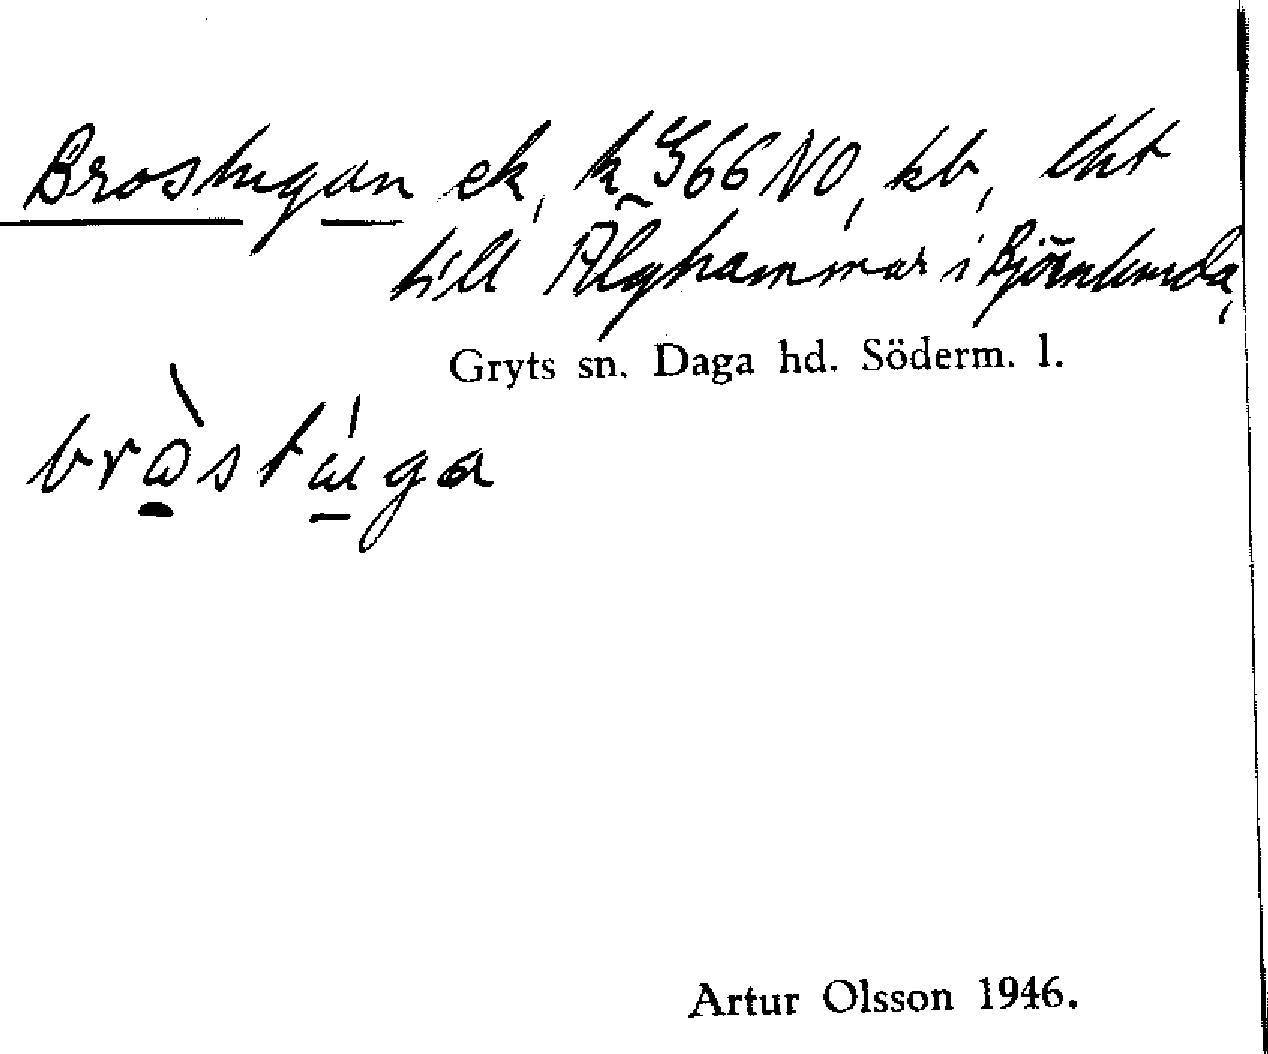 Brostugan ek, k S66 NO, kb, lht
till Älghammar i Björnlunda,
Gryts sn. Daga hd. Söderm. l.
bròstúga
Artur Olsson 1946.